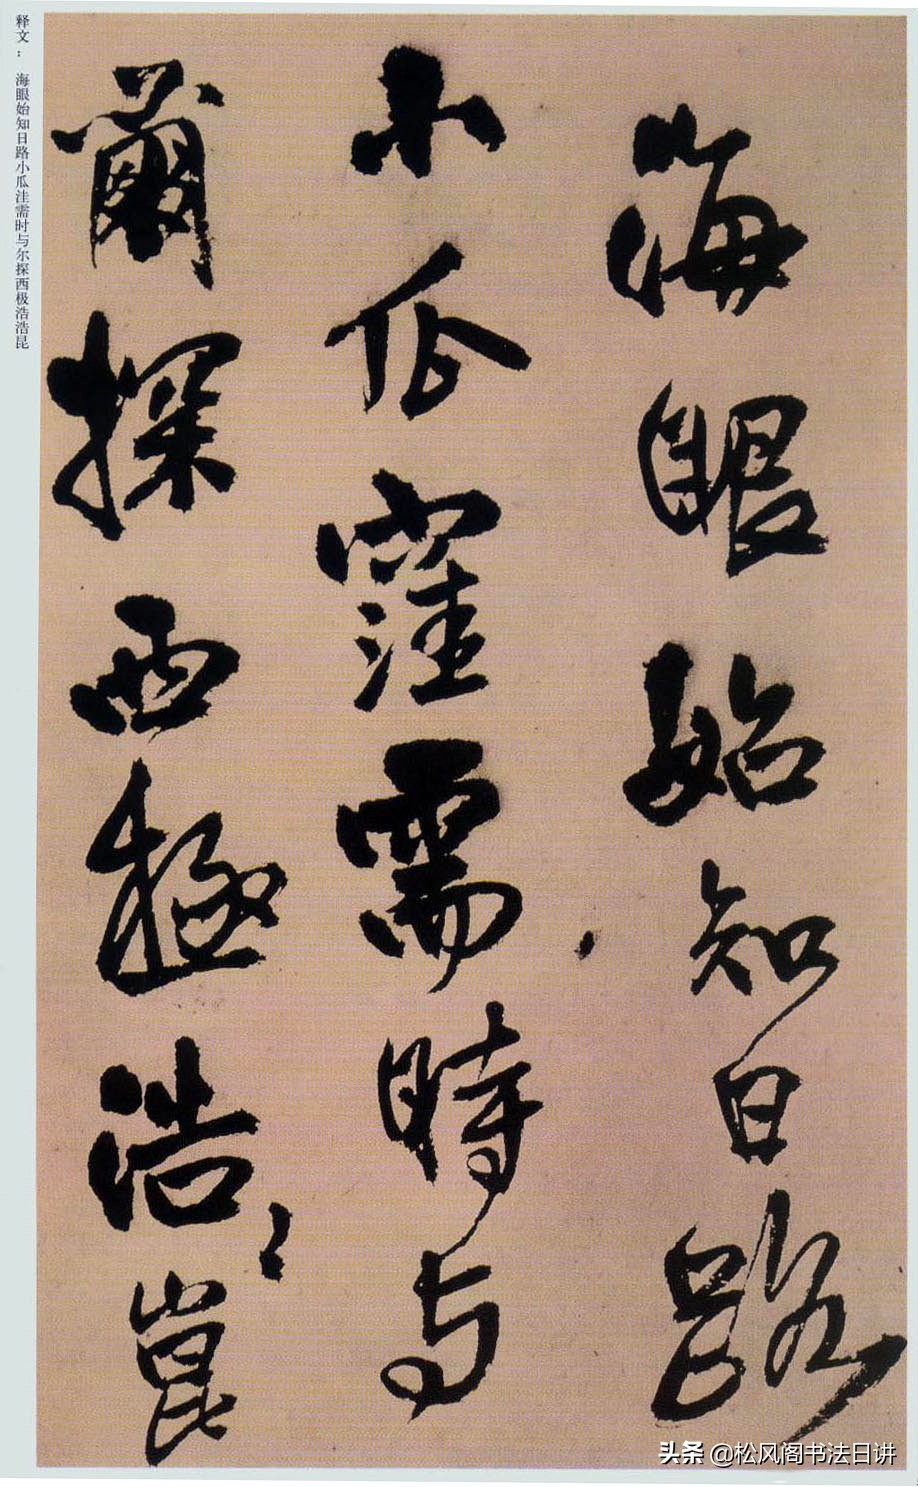 海眼始知日路
小瓜窪需時与
爾探西極浩〻崑
释文： 海眼始知日路小瓜洼需时与尔探西极浩浩昆
头条 @松风阁书法日讲